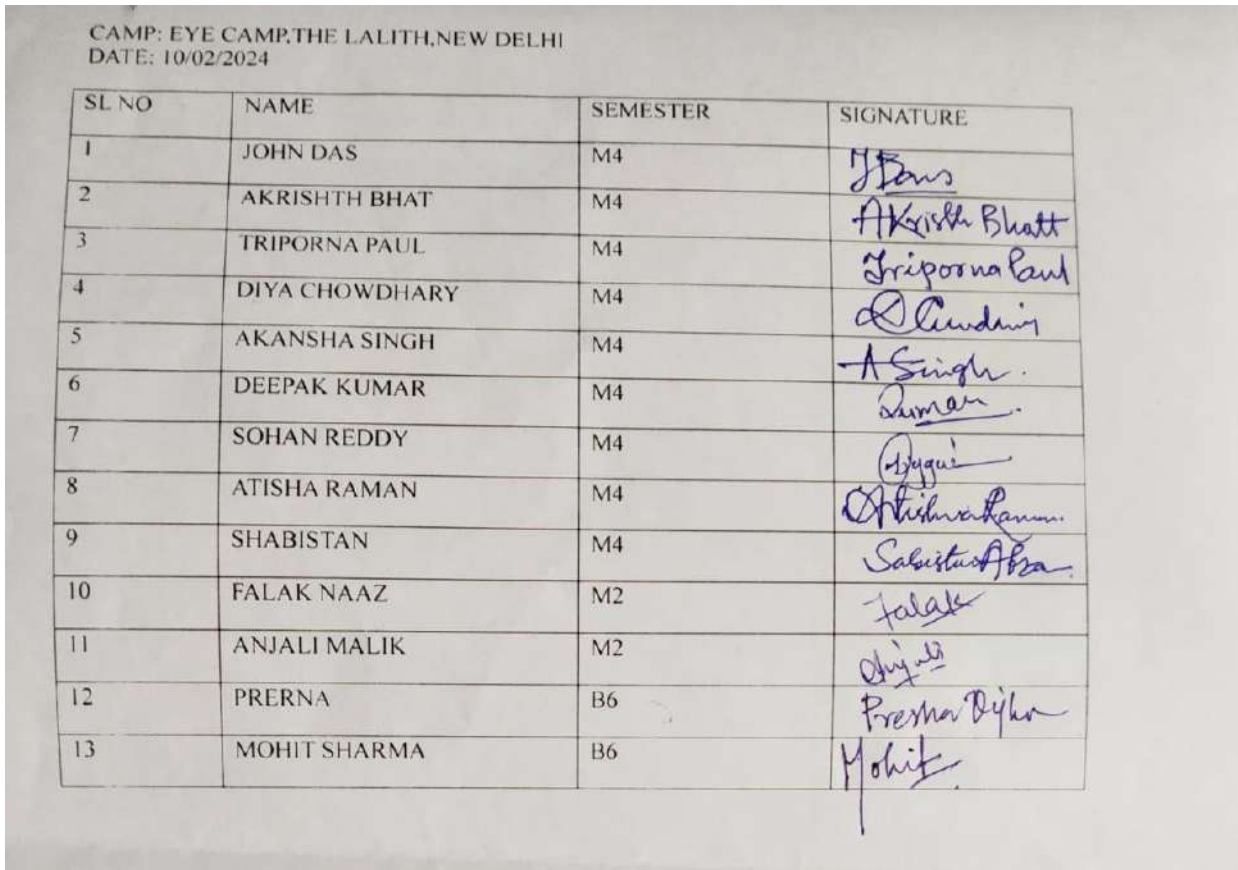 CAMP: EYE CAMP,THE LALITH,NEW DELHI
DATE: 10/02/2024
SL NO NAME SEMESTER SIGNATURE
1 JOHN DAS M4
2 AKRISHTH BHAT M4 AKrishth Bhatt
3 TRIPORNA PAUL M4 Triporna Paul
4 DIYA CHOWDHARY M4
5 AKANSHA SINGH M4 A Singh.
6 DEEPAK KUMAR M4
7 SOHAN REDDY M4
8 ATISHA RAMAN M4
9 SHABISTAN M4
10 FALAK NAAZ M2 Falak
11 ANJALI MALIK M2 Anjali
12 PRERNA B6
13 MOHIT SHARMA B6 Mohit.